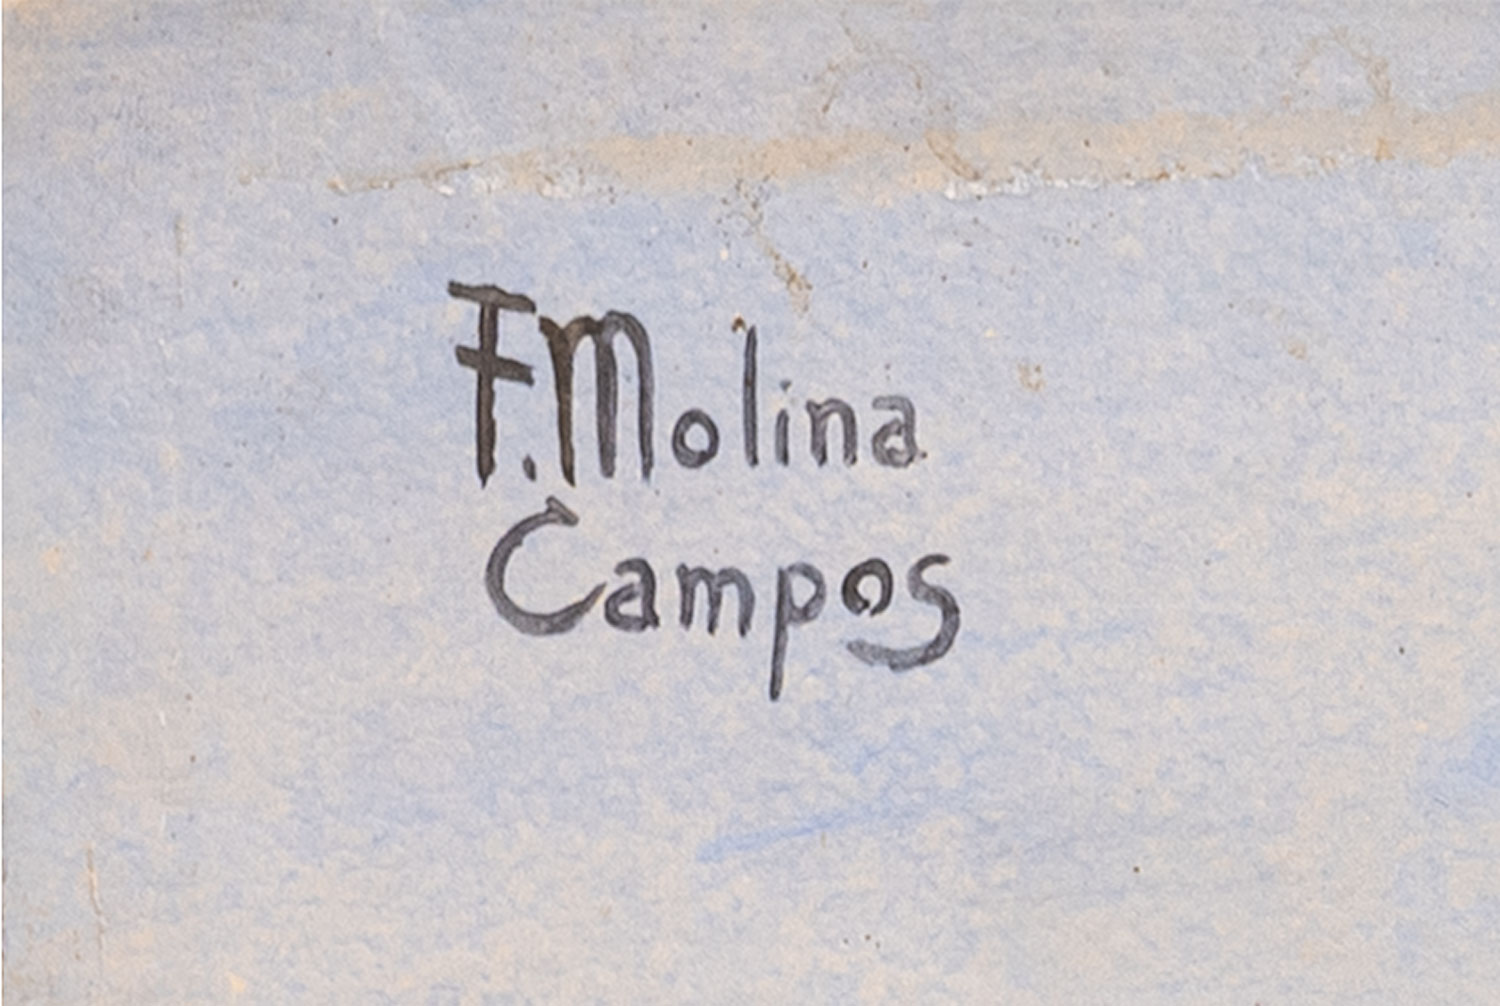 F. Molina
Campos